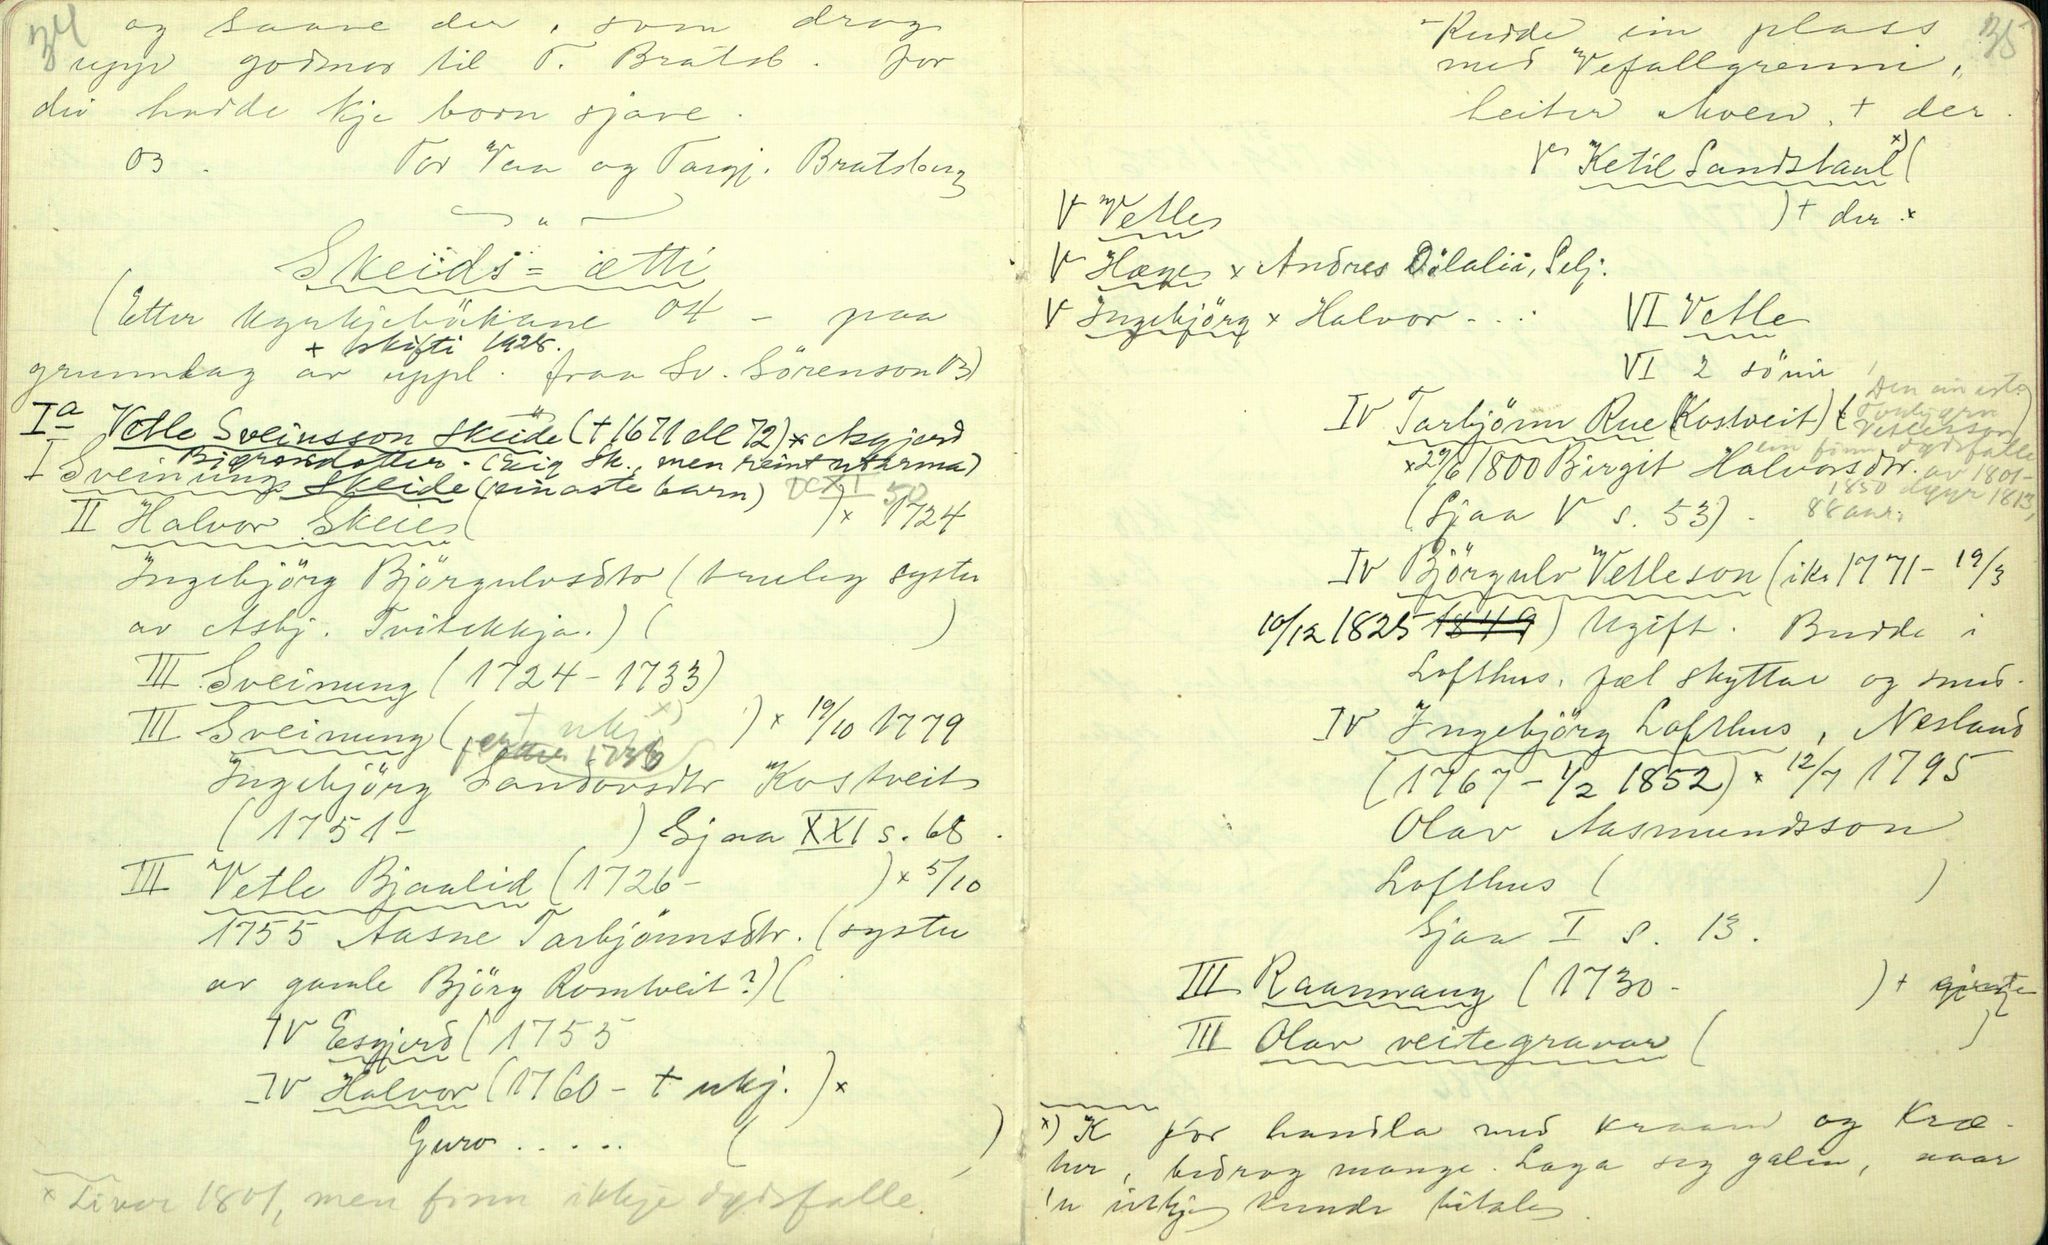 34
og saave der, som drog
upp godmor til T. Bratsb. for
dei hadde kje born sjave.
03. Tor Vaa og Targj. Bratsberg
Skeids-ætti
(Etter kyrkjebökane 04 - paa
+ skifti 1925.
grunnlag av uppl. fraa Sv. Sörenson 03)
Ia Vetle Sveinsson Skeide († 1671 ell 72) x Asgjerd
(Eig Sk., men reint utarma)
I Sveinung Skeide (einaste barn)
II Halvor Skeie ( ) x 1724
Ingebjörg Björgulvsdtr (truleg syster
av Asbj. Tvitekkja.) ( )
III Sveinung (1724 - 1733)
III Sveinung ( † ukj x) ) x 19/10 1779
1736
Ingebjörg Sandovsdtr Kostveit
(1751- ) Sjaa XXI s. 68.
III Vetle Bjaalid (1726- ) x 5/10
1755 Aasne Tarbjönnsdtr. (syster
av gamle Björg Romtveit?) (
IV Esgjerd (1755
IV Halvor (1760 - † ukj.) x
Guro ..... ( )
x Liver 1801, men finn ikkje dydsfalle.
35
Rudde ein plass
med Vefallgrenni,
heiter Moen, † der.
V Ketil Sandsbaul x) (
) † der. x
V Vetle
V Hæge x Andres Dilalii, Selj.
V Ingebjörg x Halvor ...
VI Vetle
VI 2 söner
IV Tarbjönn Rue (Kostveit) (
Den ein
Vetleson
ein finn dydsfalle
av 1801-
1850 döyr 1813,
88 aar.
x 29/6 1800 Birgit Halvorsdtr.
(Sjaa V s. 53).
IV Björgulv Vetleson (ikr 1771 - 19/3
10/12 1825 1849) Ugift. Budde i
Lofthus. fæl skyttar og smed.
IV Ingebjörg Lofthus, Nesland
(1767 - 1/2 1852) x 12/7 1795
Olav Aasmundsson
Lofthus ( )
Sjaa I s. 13.
III Raannaug (1730 - ) †
III Olav veitegravar ( )
x) K för handla med kraam og kræ-
ter, bedrog mange. Laga seg galen, naar
'n ikkje kunde betale.